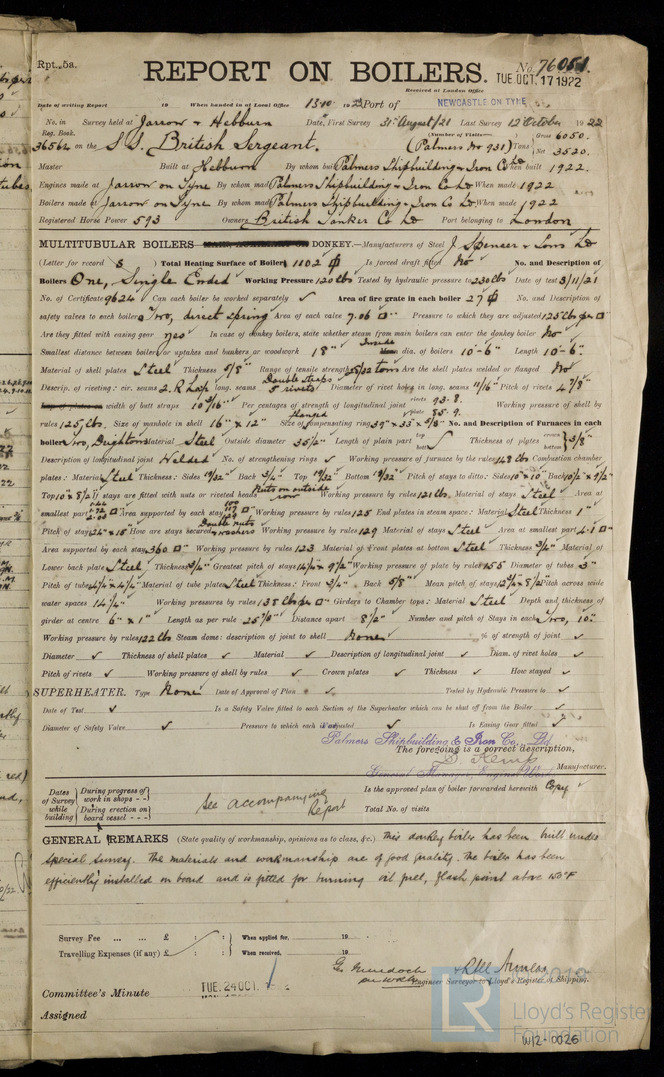 Rpt. 5a.
No. 76051.
REPORT ON BOILERS.
TUE. OCT. 17 1922
Received at London Office
Date of writing Report 19 When handed in at Local Office 13.10. 1922 Port of NEWCASTLE ON TYNE
No. in Survey held at Jarrow & Hebburn Date, First Survey 31st August/21 Last Survey 12th October 1922
Reg. Book. (Number of Visits) Gross 6050.
36564 on the S.S. British Sergeant. (Palmers No 931) Tons Net 3520.
Master Built at Hebburn By whom built Palmers Shipbuilding & Iron Co Ltd When built 1922.
Engines made at Jarrow on Tyne By whom made Palmers Shipbuilding & Iron Co Ltd When made 1922
Boilers made at Jarrow on Tyne By whom made Palmers Shipbuilding & Iron Co Ld When made 1922
Registered Horse Power 593 Owners British Tanker Co Ld Port belonging to London
MULTITUBULAR BOILERS DONKEY.—Manufacturers of Steel J. Spencer & Sons Ld
(Letter for record S) Total Heating Surface of Boilers 1102 Is forced draft fitted No No. and Description of
Boilers One, Single Ended Working Pressure 120 lbs Tested by hydraulic pressure to 230 lbs Date of test 3/11/21
No. of Certificate 9624 Can each boiler be worked separately ✓ Area of fire grate in each boiler 27 No. and Description of
safety valves to each boiler Two, direct spring Area of each valve 7.06 □" Pressure to which they are adjusted 125 lbs per □"
Are they fitted with easing gear yes In case of donkey boilers, state whether steam from main boilers can enter the donkey boiler No
Smallest distance between boilers or uptakes and bunkers or woodwork 18" Inside dia. of boilers 10'-6" Length 10'-6"
Material of shell plates Steel Thickness 5/8" Range of tensile strength tons Are the shell plates welded or flanged No
Descrip. of riveting: cir. seams 2. R Lap long. seams Double Straps 5 rivets Diameter of rivet holes in long. seams 11/16" Pitch of rivets 4 7/8"
width of butt straps 10 3/16" Per centages of strength of longitudinal joint rivets 93.8. plates 85.9. Working pressure of shell by
rules 125 lbs. Size of manhole in shell 16" x 12" Size of compensating ring flanged 39" x 33" x 5/8" No. and Description of Furnaces in each
boiler Two, Deightons Material Steel Outside diameter 35 1/2" Length of plain part top bottom Thickness of plates crown bottom 3/8"
Description of longitudinal joint Welded No. of strengthening rings ✓ Working pressure of furnace by the rules 148 lbs Combustion chamber
plates: Material Steel Thickness: Sides 19/32" Back 3/4" Top 19/32" Bottom 19/32" Pitch of stays to ditto: Sides 10" x 10" Back 10 1/2" x 9 1/2"
Top 10" x 8 1/2" If stays are fitted with nuts or riveted heads Nuts on outside Working pressure by rules 121 lbs. Material of stays Steel Area at
smallest part Area supported by each stay Working pressure by rules 125 End plates in steam space: Material Steel Thickness 1"
Pitch of stays 24" x 15" How are stays secured Double nuts & washers Working pressure by rules 129 Material of stays Steel Area at smallest part 4.1 □"
Area supported by each stay 360 □" Working pressure by rules 123 Material of Front plates at bottom Steel Thickness 3/4" Material of
Lower back plate Steel Thickness 3/4" Greatest pitch of stays 14 1/4" x 9 1/2" Working pressure of plate by rules 155 Diameter of tubes 3"
Pitch of tubes 4 1/4" x 4 1/4" Material of tube plates Steel Thickness: Front 3/4" Back 5/8" Mean pitch of stays 12 3/4" x 8 1/2" Pitch across wide
water spaces 14 1/4" Working pressures by rules 138 lbs per □" Girders to Chamber tops: Material Steel Depth and thickness of
girder at centre 6" x 1" Length as per rule 25 7/8" Distance apart 8 1/2" Number and pitch of Stays in each Two, 10"
Working pressure by rules 122 lbs Steam dome: description of joint to shell None % of strength of joint ✓
Diameter ✓ Thickness of shell plates ✓ Material ✓ Description of longitudinal joint ✓ Diam. of rivet holes ✓
Pitch of rivets ✓ Working pressure of shell by rules ✓ Crown plates ✓ Thickness ✓ How stayed ✓
SUPERHEATER. Type None Date of Approval of Plan ✓ Tested by Hydraulic Pressure to ✓
Date of Test ✓ Is a Safety Valve fitted to each Section of the Superheater which can be shut off from the Boiler ✓
Diameter of Safety Valve ✓ Pressure to which each is adjusted ✓ Is Easing Gear fitted ✓
For
Palmers Shipbuilding & Iron Co., Ltd.
The foregoing is a correct description,
Manufacturer.
General Manager, Engine Works
Dates of Survey while building During progress of work in shops - - During erection on board vessel - - - See accompanying Report Is the approved plan of boiler forwarded herewith Copy
Total No. of visits
GENERAL REMARKS (State quality of workmanship, opinions as to class, &c.) This donkey boiler has been built under
special survey. The materials and workmanship are of good quality. The boiler has been
efficiently installed on board and is fitted for burning oil fuel, flash point above 150°F
Survey Fee ... ... £ : : When applied for, 19
Travelling Expenses (if any) £ : : When received, 19
G. Murdoch
Engineer Surveyor to Lloyd's Register of Shipping.
Committee's Minute TUE. 24 OCT.
Assigned
LR Lloyd's Register Foundation
W12-0026